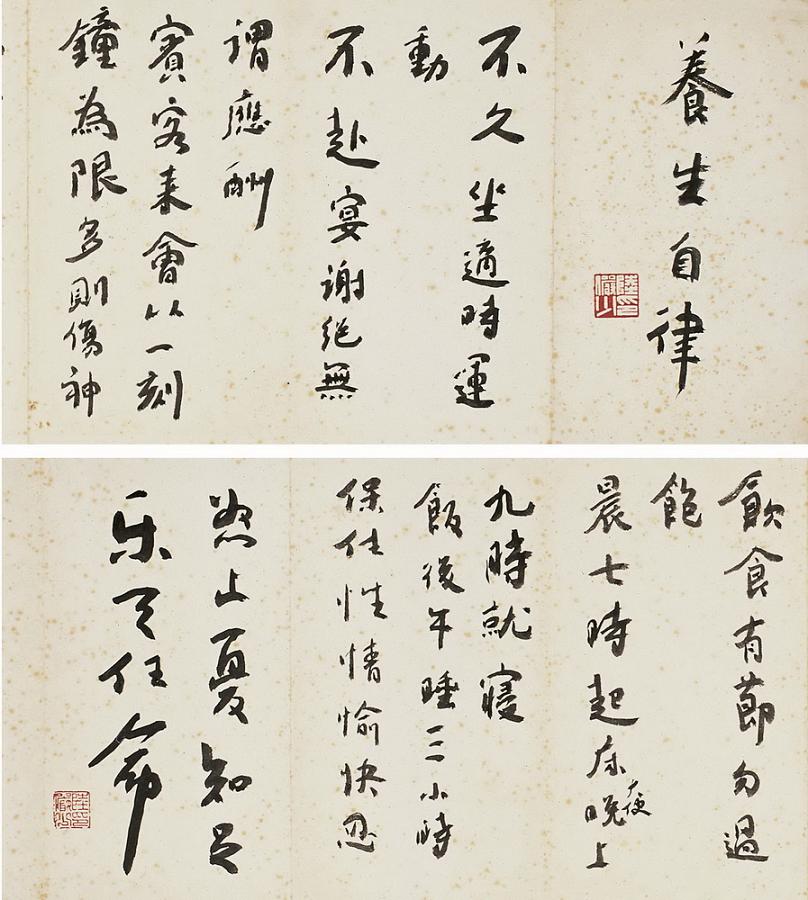 養生自律
陸印儼少
不久坐適時運
動
不赴宴謝絕無
謂應酬
賓客来會以一刻
鐘為限多則傷神
飲食有節勿過
飽
晨七時起床大便晚上
九時就寢
飯後午睡一二小時
保住性情愉快忍
怒止憂知足
乐天任命
陸印儼少